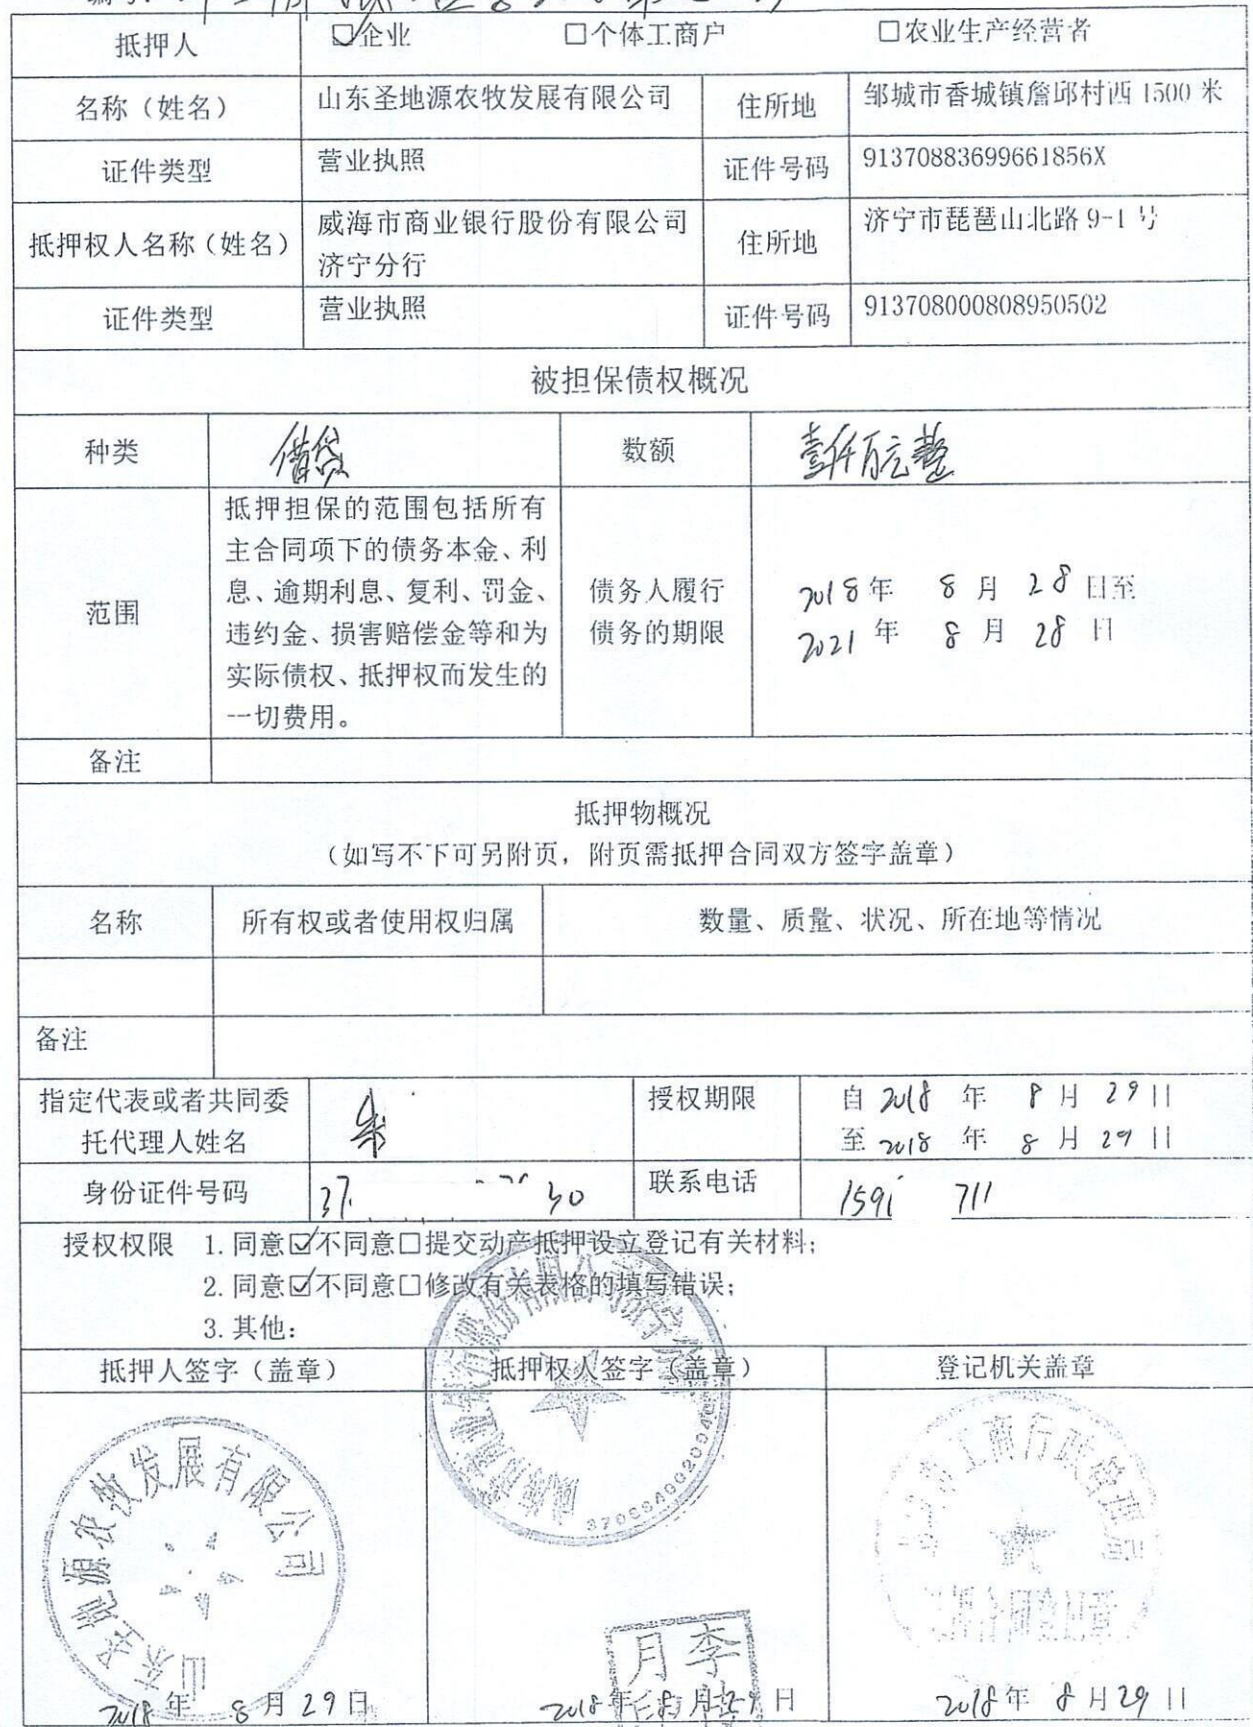 抵押人 ☑企业 □个体工商户 □农业生产经营者
名称（姓名） 山东圣地源农牧发展有限公司 住所地 邹城市香城镇詹邱村西 1500 米
证件类型 营业执照 证件号码 91370883699661856X
抵押权人名称（姓名） 威海市商业银行股份有限公司 住所地 济宁市琵琶山北路 9-1 号
济宁分行
证件类型 营业执照 证件号码 913708000808950502
被担保债权概况
种类 借贷 数额 壹仟万元整
抵押担保的范围包括所有
主合同项下的债务本金、利
息、逾期利息、复利、罚金、
范围 债务人履行 2018年 8月 28日至
违约金、损害赔偿金等和为
债务的期限 2021年 8月 28日
实际债权、抵押权而发生的
一切费用。
备注
抵押物概况
（如写不下可另附页，附页需抵押合同双方签字盖章）
名称 所有权或者使用权归属 数量、质量、状况、所在地等情况
备注
指定代表或者共同委 朱 授权期限 自 2018 年 8月 29日
托代理人姓名 至 2018 年 8月 29日
身份证件号码 37 30 联系电话 159 711
授权权限 1. 同意☑不同意□提交动产抵押设立登记有关材料；
2. 同意☑不同意□修改有关表格的填写错误；
3. 其他：
抵押人签字（盖章） 抵押权人签字（盖章） 登记机关盖章
山东圣地源农牧发展有限公司
威海市商业银行股份有限公司济宁分行
工商行政管理局
李月
2018年 8月29日 2018年 8月29日 2018年 8月29日